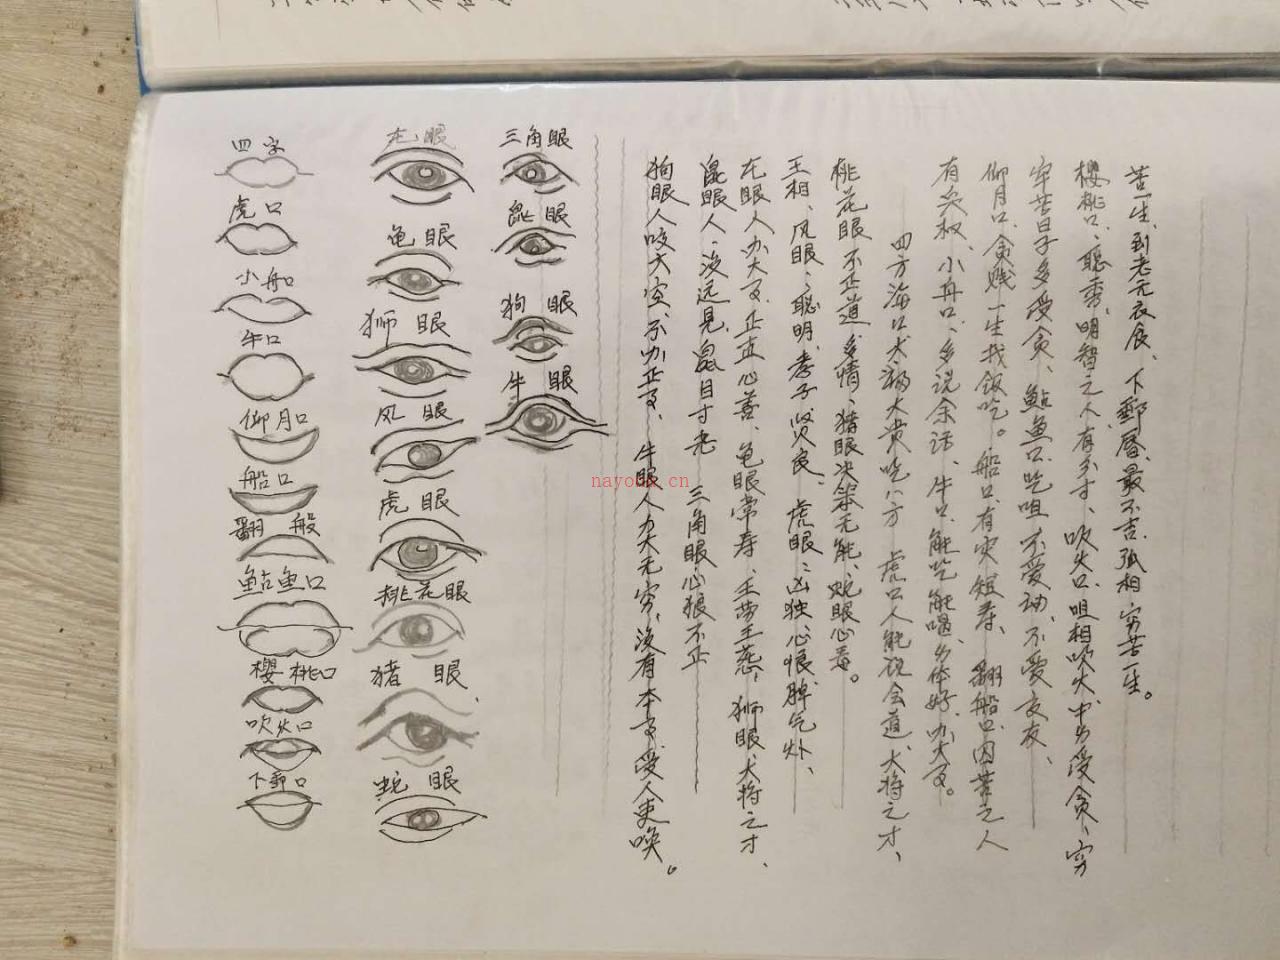 四字
虎口
小船
牛口
仰月口
船口
翻 般
鲇鱼口
樱桃口
吹火口
下郵口
龙眼
龟眼
狮眼
凤眼
虎眼
桃花眼
猪眼
蛇眼
三角眼
鼠眼
狗眼
牛眼
狗眼人咬大空、不办正事、牛眼人力大无穷、没有本事受人吏唤。
鼠眼人、没远见、鼠目寸光 三角眼心狼不正
龙眼人办大事、正直心善、龟眼常寿、王带王燕、狮眼、大将之才、
王相、凤眼、聪明、孝子贤良、虎眼、凶独心恨脾气炓、
桃花眼 不正道 多情、猪眼决笨无能、蛇眼心毒。
四方海口大福大贵吃八方 虎口人能说会道、大将之才、
有兵权、小舟口、多说余话、牛口、能吃能喝、身体好、办大事。
仰月口、贪贱一生找饭吃。船口、有灾短寿、翻船口、因苦之人
牢苦日子多受贪、鲇鱼口、吃咀不爱动、不爱交友、
樱桃口、聪秀、明智之人有多才、吹火口、咀相吹火中步受贪、穷
苦一生、到老无衣食、下郵唇、最不吉、孤相穷苦一生。
nayona.cn